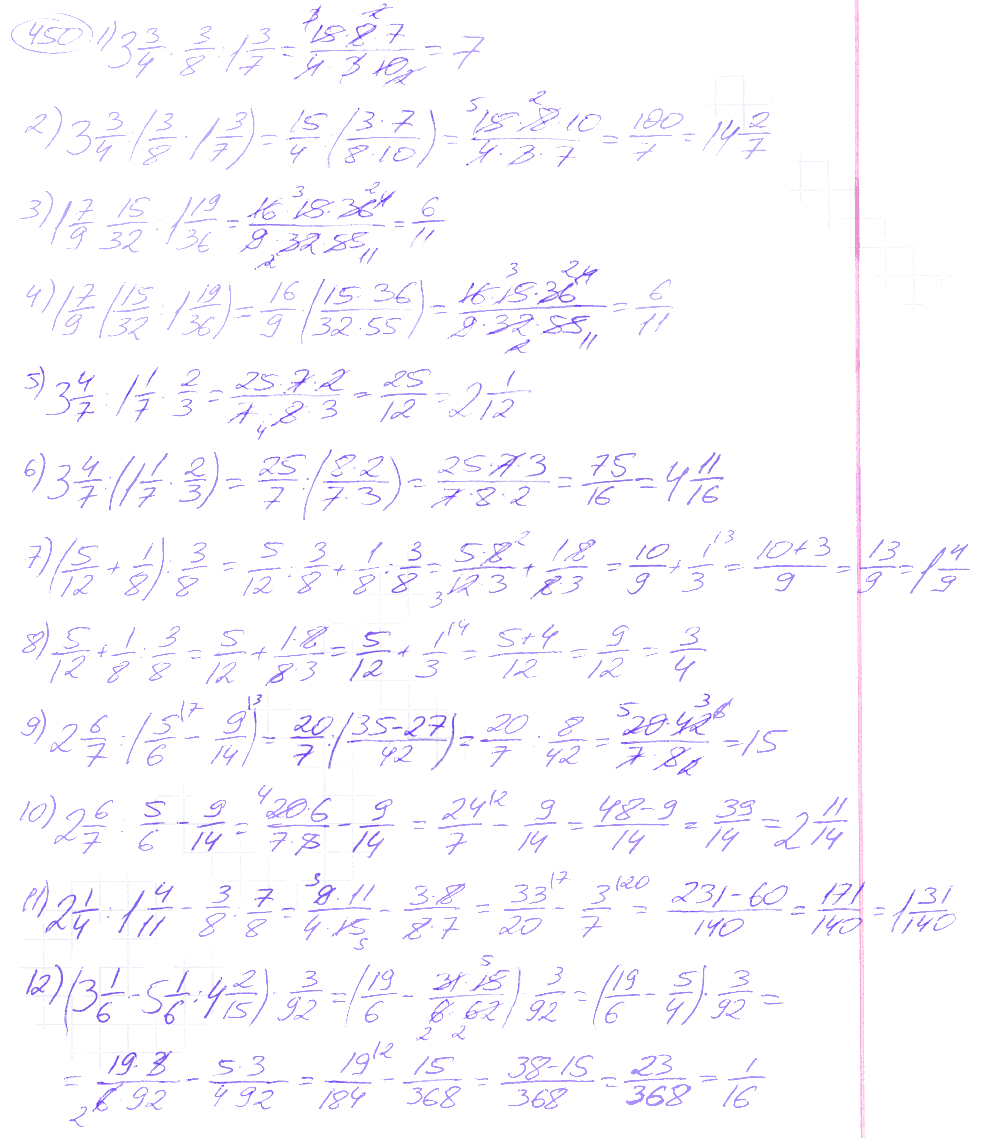 450 1) 3 3/4 : 3/8 : 1 3/7 = (15·8·7)/(4·3·10) = 7
2) 3 3/4 : (3/8 · 1 3/7) = 15/4 : (3·7/8·10) = (15·8·10)/(4·3·7) = 100/7 = 14 2/7
3) 1 7/9 · 15/32 : 1 19/36 = (16·15·36)/(9·32·55) = 6/11
4) 1 7/9 (15/32 : 1 19/36) = 16/9 · (15·36/32·55) = (16·15·36)/(9·32·55) = 6/11
5) 3 4/7 : 1 1/7 · 2/3 = (25·7·2)/(7·8·3) = 25/12 = 2 1/12
6) 3 4/7 : (1 1/7 · 2/3) = 25/7 : (8·2/7·3) = (25·7·3)/(7·8·2) = 75/16 = 4 11/16
7) (5/12 + 1/8) : 3/8 = 5/12 : 3/8 + 1/8 : 3/8 = (5·8)/(12·3) + (1·8)/(8·3) = 10/9 + 1/3 = (10+3)/9 = 13/9 = 1 4/9
8) 5/12 + 1/8 : 3/8 = 5/12 + (1·8)/(8·3) = 5/12 + 1/3 = (5+4)/12 = 9/12 = 3/4
9) 2 6/7 : (5/6 - 9/14) = 20/7 : ((35-27)/42) = 20/7 : 8/42 = (20·42)/(7·8) = 15
10) 2 6/7 : 5/6 - 9/14 = (20·6)/(7·5) - 9/14 = 24/7 - 9/14 = (48-9)/14 = 39/14 = 2 11/14
11) 2 1/4 : 1 4/11 - 3/8 : 7/8 = (9·11)/(4·15) - (3·8)/(8·7) = 33/20 - 3/7 = (231-60)/140 = 171/140 = 1 31/140
12) (3 1/6 - 5 1/6 : 4 2/15) · 3/92 = (19/6 - (31·15)/(6·62)) · 3/92 = (19/6 - 5/4) · 3/92 =
= (19·3)/(6·92) - (5·3)/(4·92) = 19/184 - 15/368 = (38-15)/368 = 23/368 = 1/16